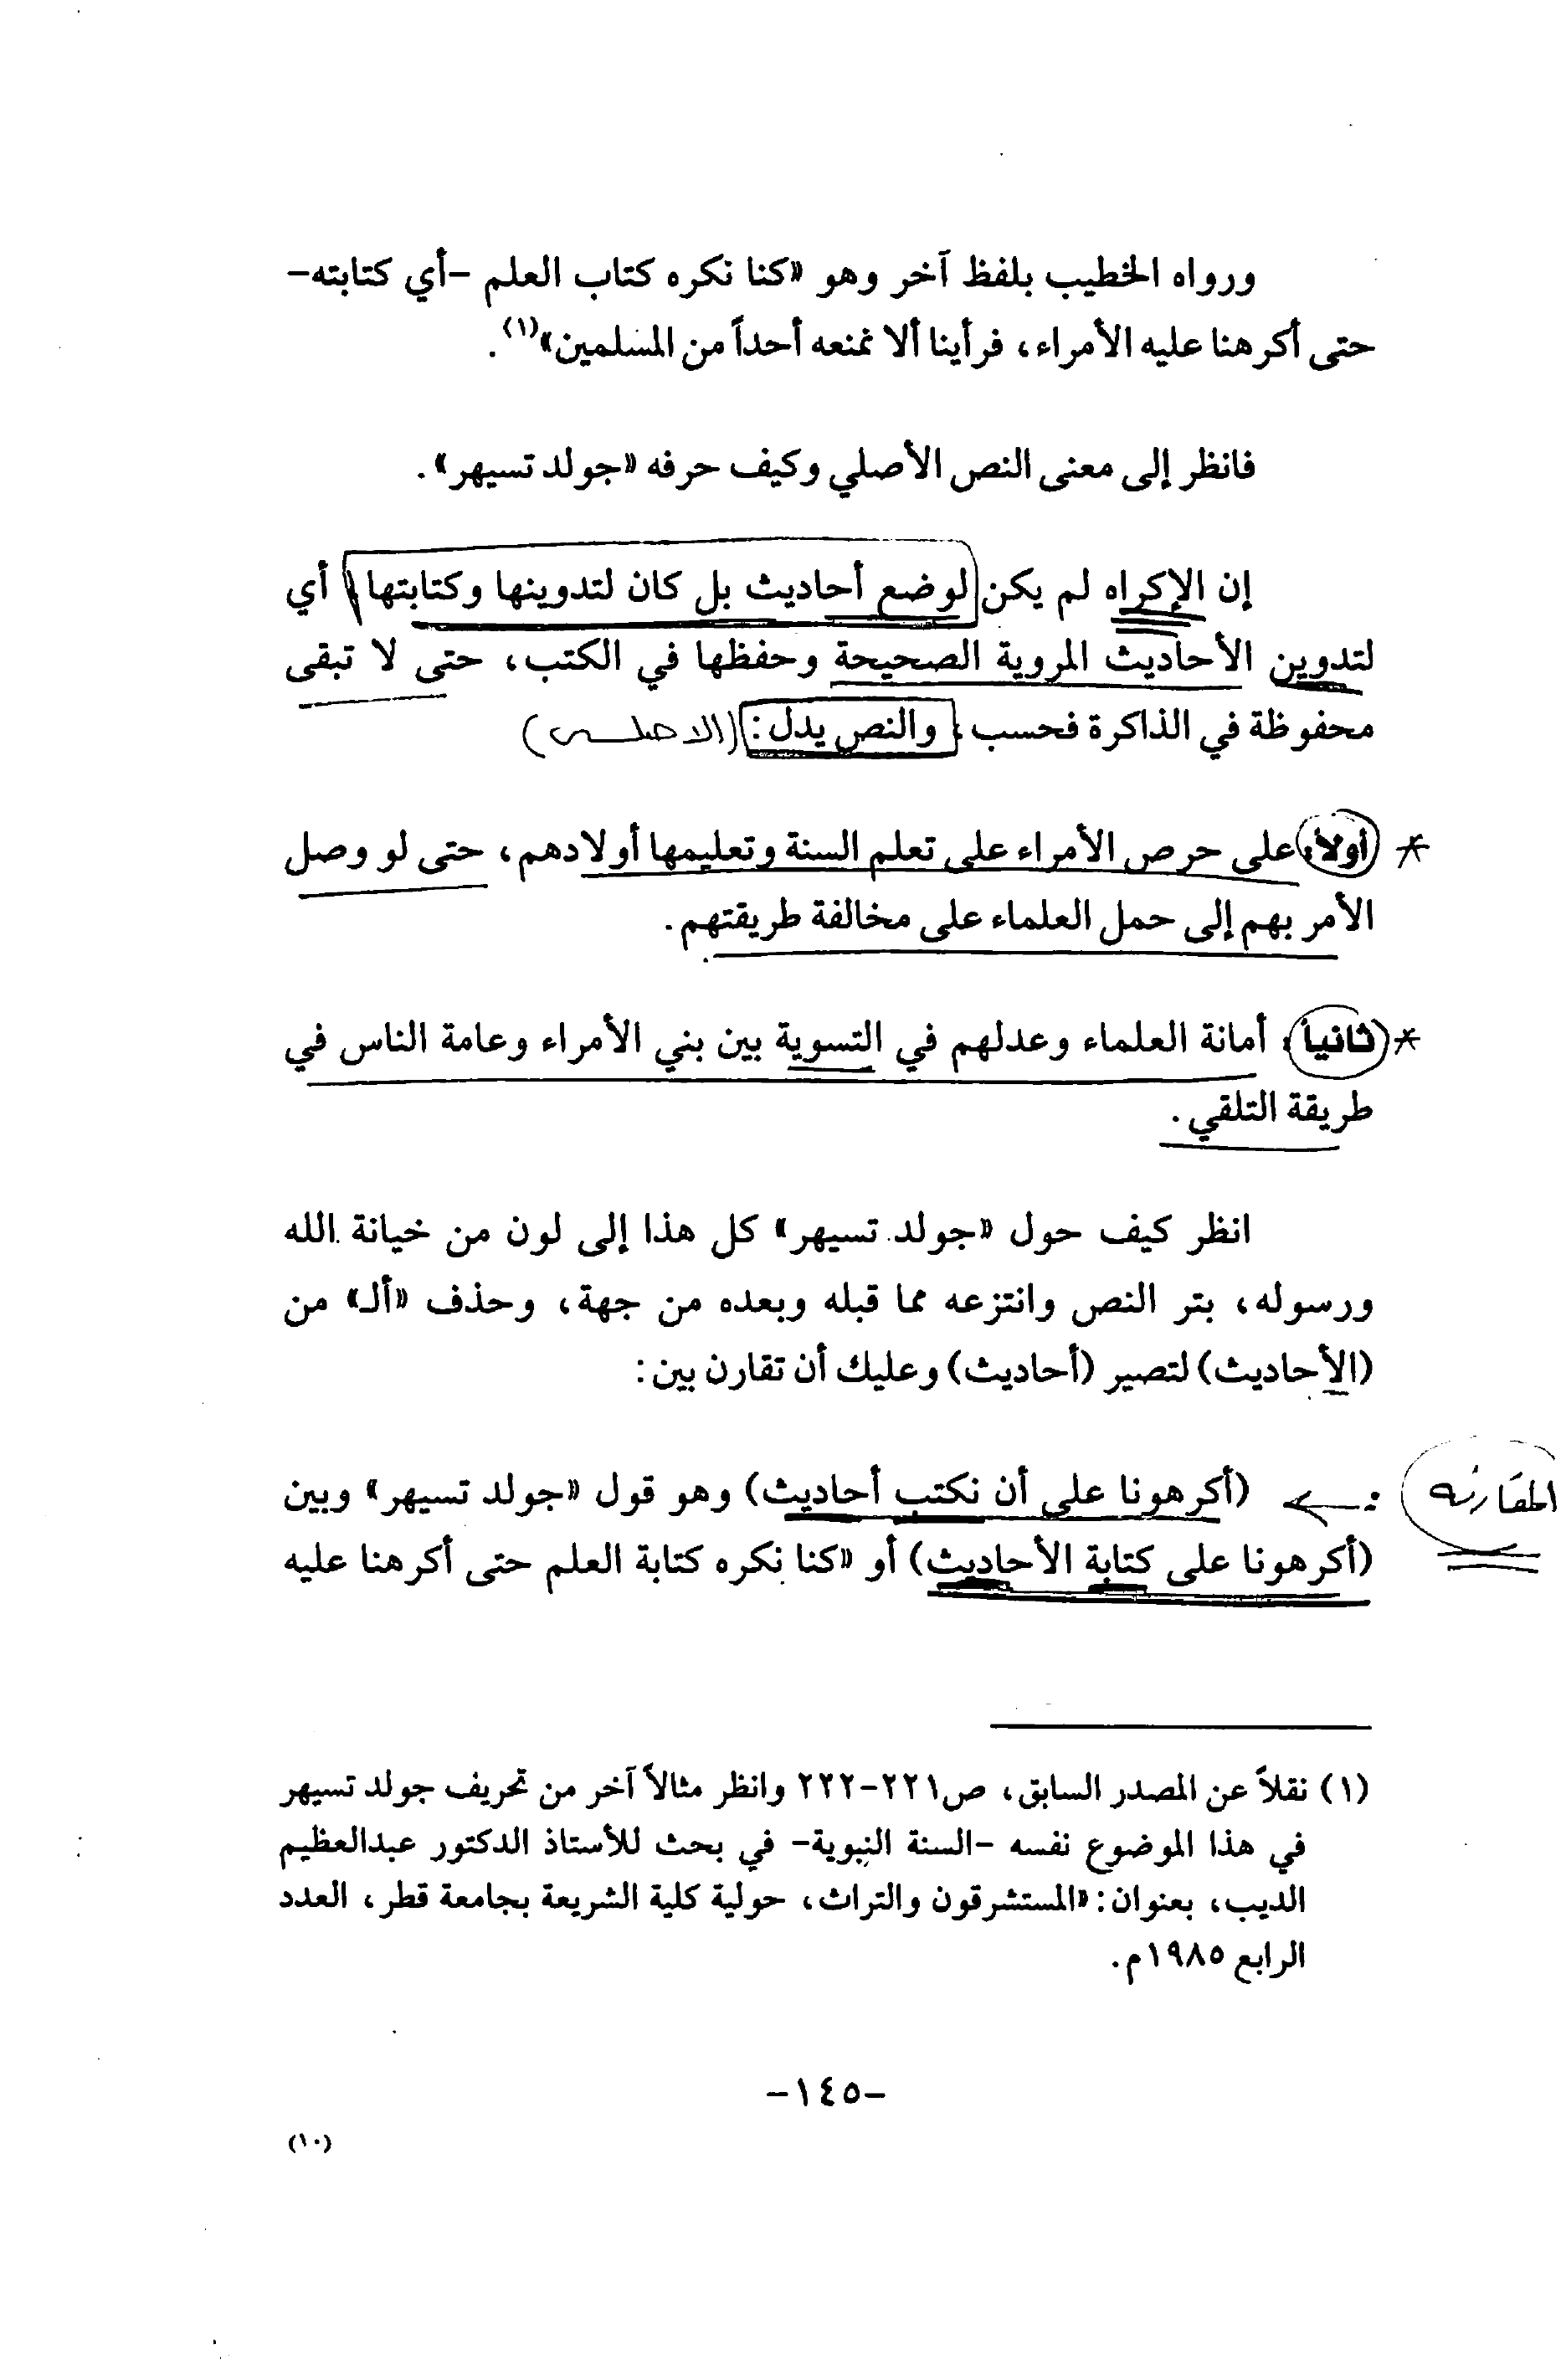 ورواه الخطيب بلفظ آخر وهو «كنا نكره كتاب العلم -أي كتابته-
حتى أكرهنا عليه الأمراء، فرأينا ألا نمنعه أحداً من المسلمين»(١).
فانظر إلى معنى النص الأصلي وكيف حرفه «جولد تسيهر».
إن الإكراه لم يكن لوضع أحاديث بل كان لتدوينها وكتابتها، أي
لتدوين الأحاديث المروية الصحيحة وحفظها في الكتب، حتى لا تبقى
محفوظة في الذاكرة فحسب، والنص يدل: (الاصلي)
* أولاً: على حرص الأمراء على تعلم السنة وتعليمها أولادهم، حتى لو وصل
الأمر بهم إلى حمل العلماء على مخالفة طريقتهم.
* ثانياً: أمانة العلماء وعدلهم في التسوية بين بني الأمراء وعامة الناس في
طريقة التلقي.
انظر كيف حول «جولد تسيهر» كل هذا إلى لون من خيانة الله
ورسوله، بتر النص وانتزعه مما قبله وبعده من جهة، وحذف «ألـ» من
(الأحاديث) لتصير (أحاديث) وعليك أن تقارن بين:
المقارنه :← (أكرهونا على أن نكتب أحاديث) وهو قول «جولد تسيهر» وبين
(أكرهونا على كتابة الأحاديث) أو «كنا نكره كتابة العلم حتى أكرهنا عليه
(١) نقلاً عن المصدر السابق، ص٢٢١-٢٢٢ وانظر مثالاً آخر من تحريف جولد تسيهر
في هذا الموضوع نفسه -السنة النبوية- في بحث للأستاذ الدكتور عبدالعظيم
الديب، بعنوان: «المستشرقون والتراث، حولية كلية الشريعة بجامعة قطر، العدد
الرابع ١٩٨٥م.
-١٤٥-
(١٠)